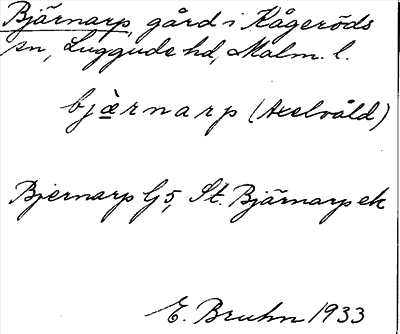 Bjärnarp, gård i Kågeröds
sn, Luggude hd, Malm. l.
bjæ̀rnarp (Axelvåld)
Bjernarp G 5, St. Bjärnarp ek
E. Bruhn 1933